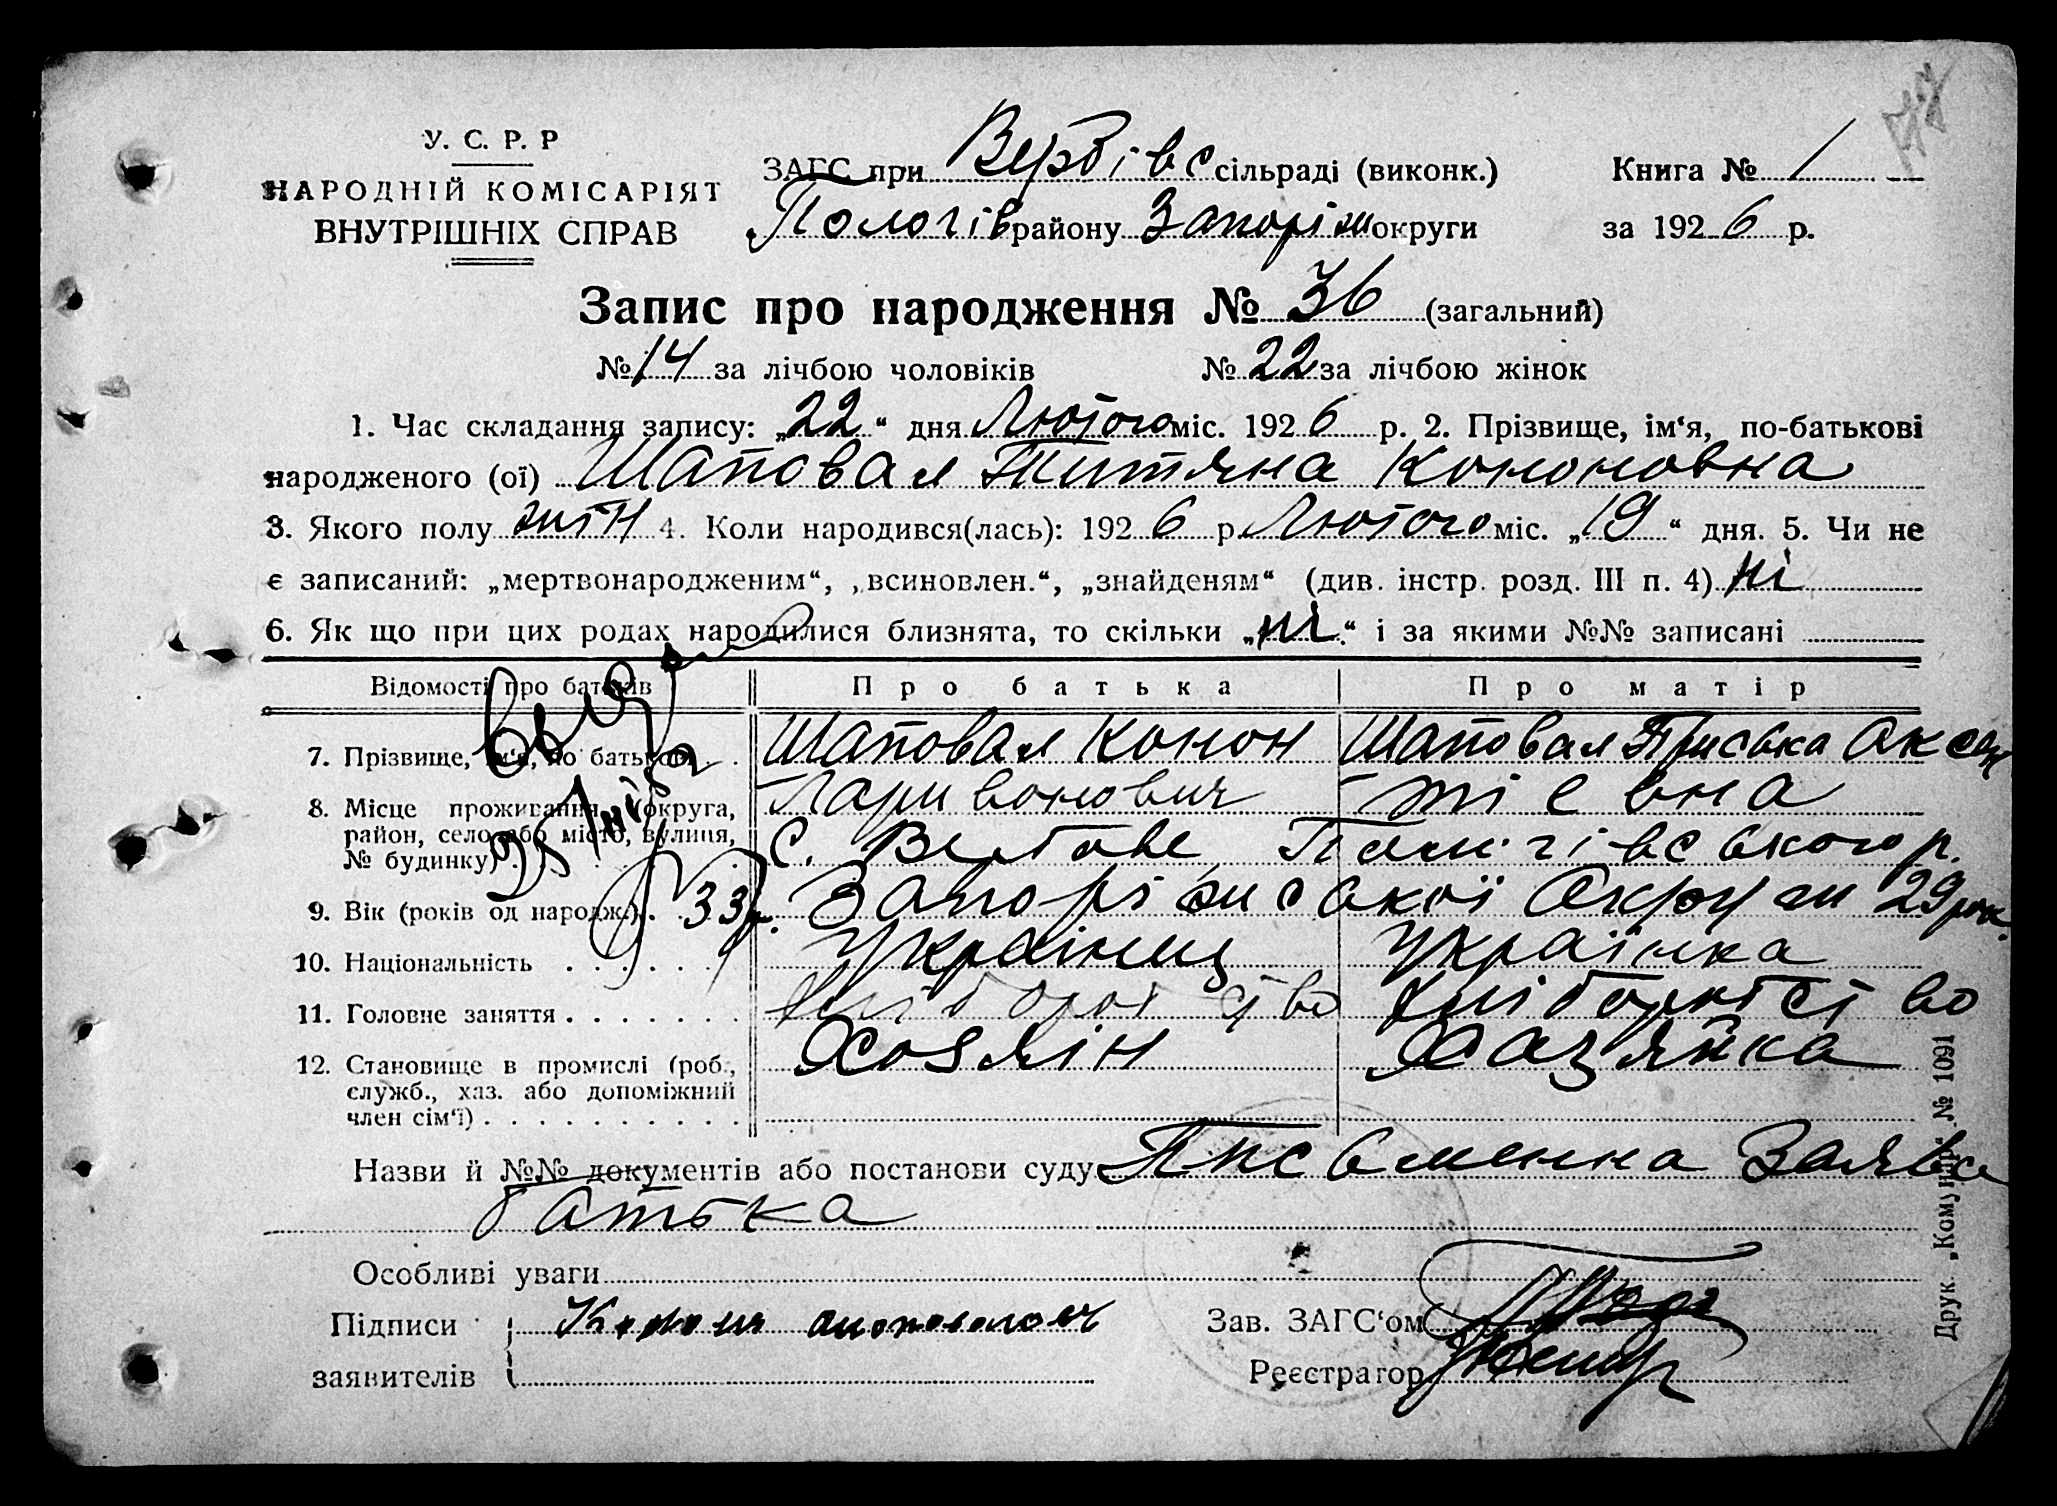 У. С. Р. Р
НАРОДНІЙ КОМІСАРІЯТ
ВНУТРІШНІХ СПРАВ
ЗАГС при Вербівс сільраді (виконк.)
Пологів району Запоріж округи
Книга № 1
за 1926 р.
Запис про народження № 36 (загальний)
№ 14 за лічбою чоловіків № 22 за лічбою жінок
1. Час складання запису: „22“ дня Лютого міс. 1926 р. 2. Прізвище, ім‘я, по-батькові
народженого (ої) Шаповал Титяна Кононовна
3. Якого полу жін 4. Коли народився(лась): 1926 р. Лютого міс. „19“ дня. 5. Чи не
є записаний: „мертвонародженим“, „всиновлен.“, „знайденям“ (див. інстр. розд. III п. 4) ні
6. Як що при цих родах народилися близнята, то скільки „ні“ і за якими №№ записані
Відомості про батьків Про батька Про матір
7. Прізвище, ім‘я, по батькові Шаповал Конон Шаповал Приська Аксен
Ларивонович тіевна
8. Місце проживання (округа,
район, село або місто, вулиця,
№ будинку) с. Вербове Пологівського р.
9. Вік (років од народж.) 33 р. Запоріжської Округи 29 рок.
10. Національність Українец Українка
11. Головне заняття хліборобство хліборобство
12. Становище в промислі (роб., Хозяін Хазяйка
служб., хаз. або допоміжний
член сім‘ї)
Назви й №№ документів або постанови суду Письменна Заява
батька
Особливі уваги
Підписи Конон
заявителів
Зав. ЗАГС‘ом
Реєстратор
Друк. „Комунар“ № 1091